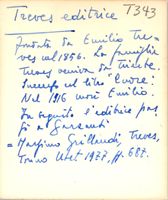 Treves editrice T343
Fondata da Emilio Tre-
ves nel 1856. La famiglia
Treves veniva da Trieste.
Successo col libro "Cuore".
Nel 1916 morì Emilio.
In seguito l'editrice pas
sò a Garzanti
= Massimo Grillandi, Treves,
Torino Utet 1977, p. 687.